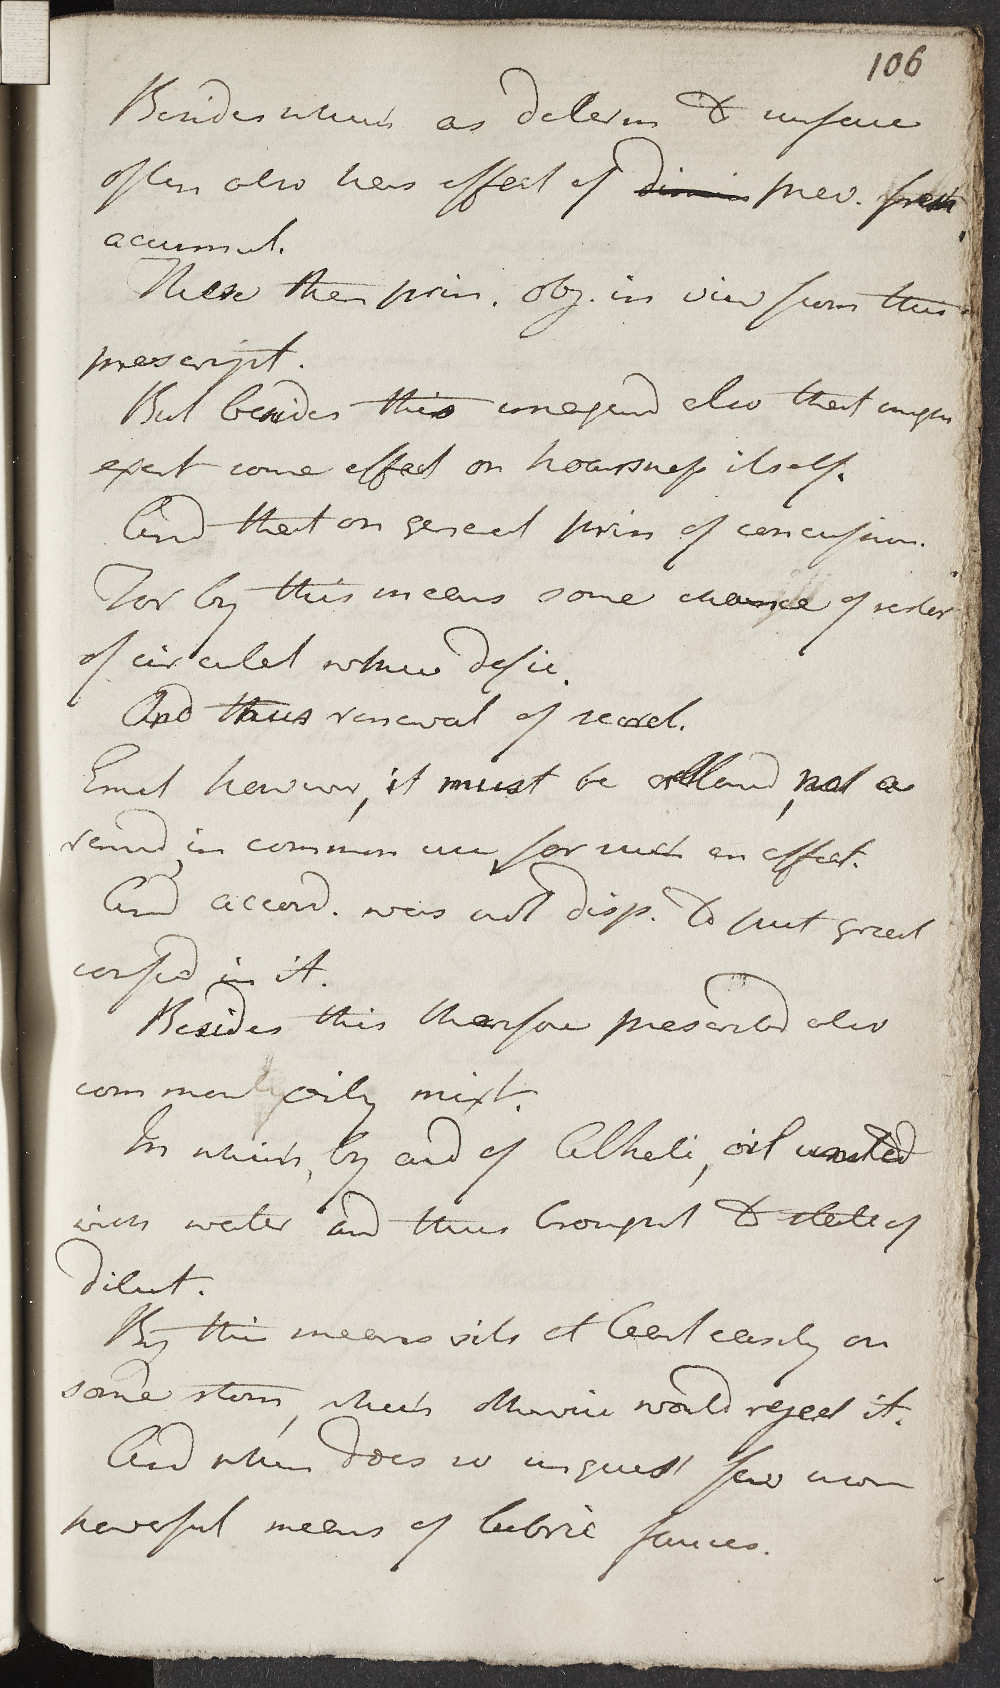 106
Besides which as determ to surface
often also has effect of dimin prev. fresh
accumul.
These then prin. obj. in view from this
prescript.
But besides this imagined also that might
expect some effect on hoarsness itself.
And that on general prin of concussion.
For by this means some chance of restor
of circulat where defic.
And thus renewal of secret.
Emet however, it must be allowed, not a
remed in common use for such an effect.
And accord. was not disp. to put great
confid in it.
Besides this therefore prescribed also
common oily mixt.
In which, by aid of Alkali, oil united
with water and thus brought to state of
dilut.
By this means sits at least easily on
some stom, which otherwise would reject it.
And when does so in quest few more
powerful means of lubric fauces.